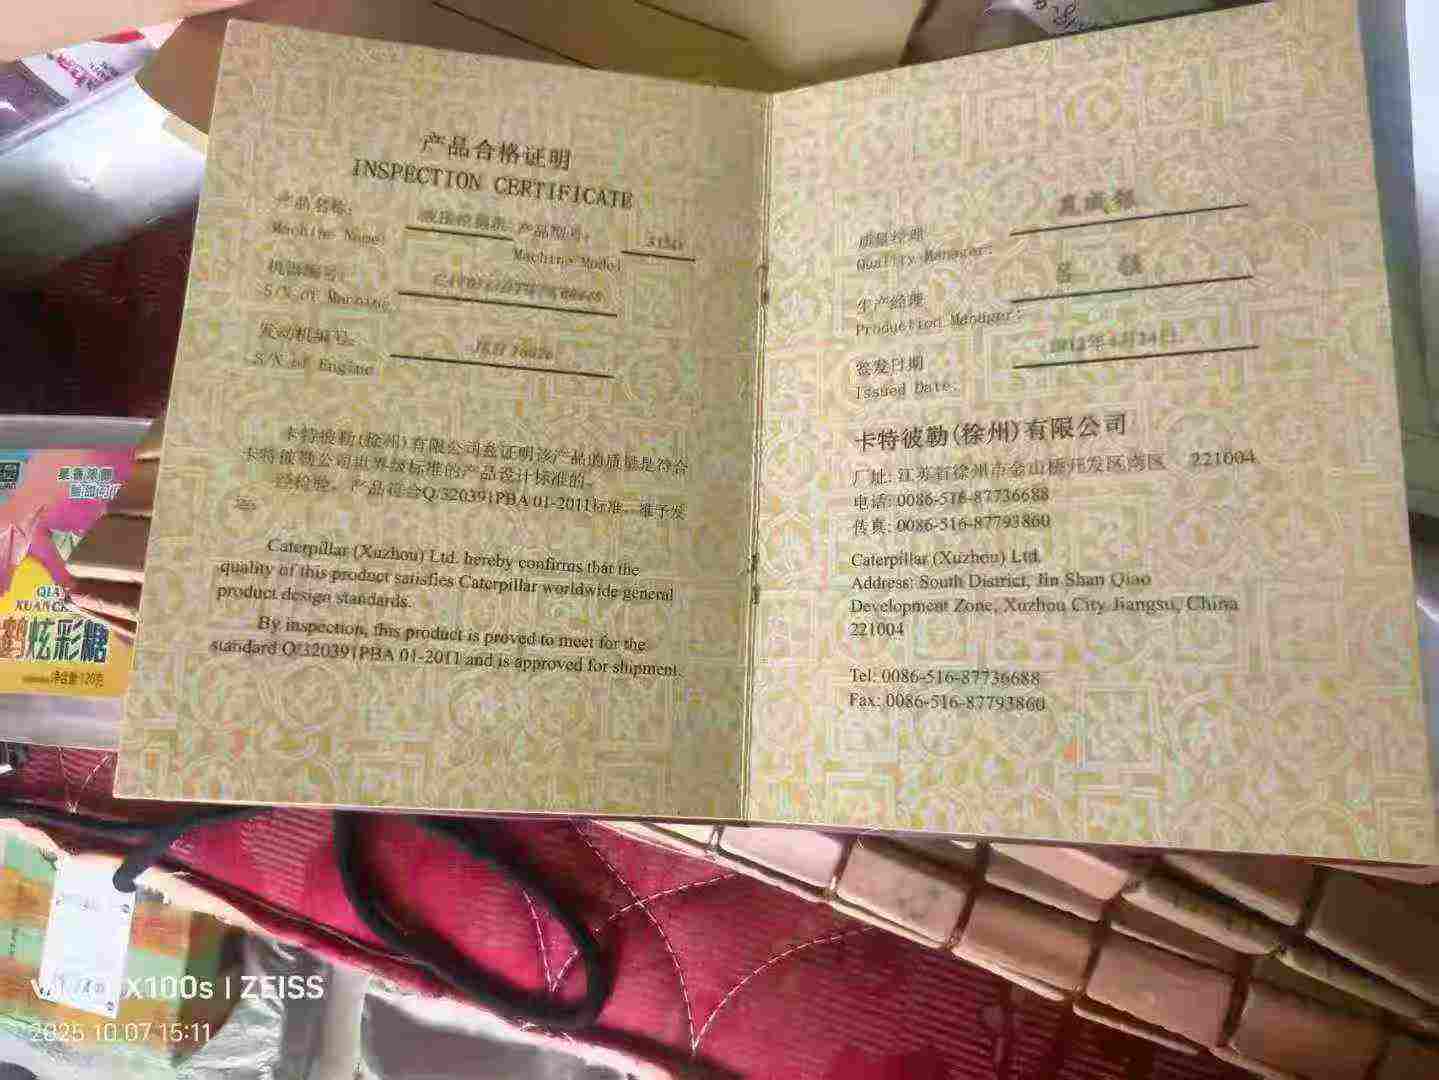 产品合格证明
INSPECTION CERTIFICATE
产品名称: 液压挖掘机 产品型号:
Machine Name: Machine Model
机器编号:
S/N of Machine
发动机编号:
S/N of Engine
卡特彼勒(徐州)有限公司兹证明该产品的质量是符合
卡特彼勒公司世界级标准的产品设计标准的。
经检验，产品符合Q/320391PBA 01-2011标准，准予发
运。
Caterpillar (Xuzhou) Ltd. hereby confirms that the
quality of this product satisfies Caterpillar worldwide general
product design standards.
By inspection, this product is proved to meet for the
standard Q/320391PBA 01-2011 and is approved for shipment.
质量经理
Quality Manager:
生产经理
Production Manager:
签发日期 2012年4月24日
Issued Date:
卡特彼勒(徐州)有限公司
厂址: 江苏省徐州市金山桥开发区南区 221004
电话: 0086-516-87736688
传真: 0086-516-87793860
Caterpillar (Xuzhou) Ltd.
Address: South District, Jin Shan Qiao
Development Zone, Xuzhou City Jiangsu, China
221004
Tel: 0086-516-87736688
Fax: 0086-516-87793860
QIA
XUANCA
鹤炫彩糖
净含量:120克
X100s | ZEISS
2025 10 07 15:11